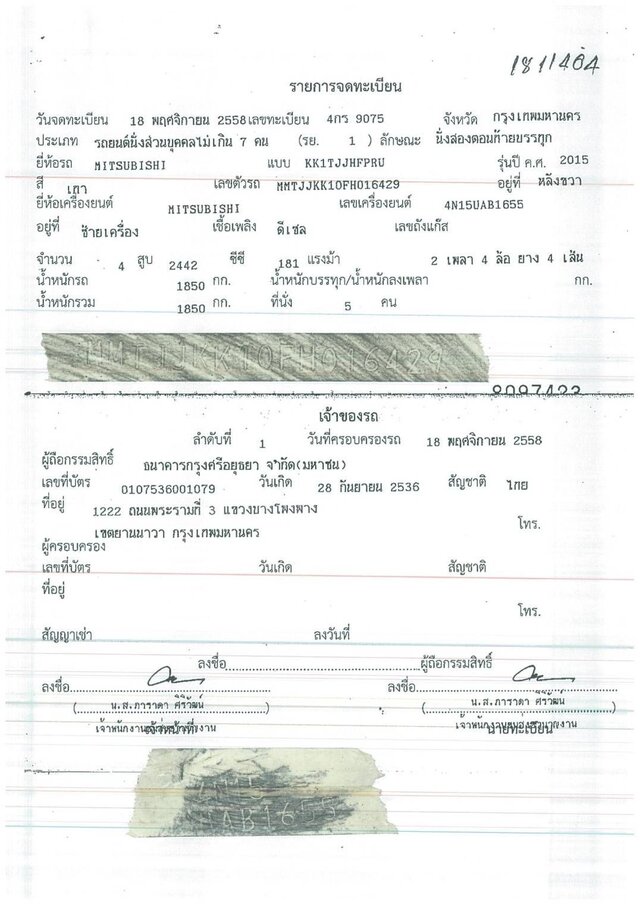 1811404
รายการจดทะเบียน
วันจดทะเบียน 18 พฤศจิกายน 2558 เลขทะเบียน 4กร 9075 จังหวัด กรุงเทพมหานคร
ประเภท รถยนต์นั่งส่วนบุคคลไม่เกิน 7 คน (รย. 1 ) ลักษณะ นั่งสองตอนท้ายบรรทุก
ยี่ห้อรถ MITSUBISHI แบบ KK1TJJHFPRU รุ่นปี ค.ศ. 2015
สี เทา เลขตัวรถ MMTJJKK10FH016429 อยู่ที่ หลังขวา
ยี่ห้อเครื่องยนต์ MITSUBISHI เลขเครื่องยนต์ 4N15UAB1655
อยู่ที่ ซ้ายเครื่อง เชื้อเพลิง ดีเซล เลขถังแก๊ส
จำนวน 4 สูบ 2442 ซีซี 181 แรงม้า 2 เพลา 4 ล้อ ยาง 4 เส้น
น้ำหนักรถ 1850 กก. น้ำหนักบรรทุก/น้ำหนักลงเพลา กก.
น้ำหนักรวม 1850 กก. ที่นั่ง 5 คน
MMTJJKK10FH016429
เจ้าของรถ
ลำดับที่ 1 วันที่ครอบครองรถ 18 พฤศจิกายน 2558
ผู้ถือกรรมสิทธิ์ ธนาคารกรุงศรีอยุธยา จำกัด(มหาชน)
เลขที่บัตร 0107536001079 วันเกิด 28 กันยายน 2536 สัญชาติ ไทย
ที่อยู่ 1222 ถนนพระรามที่ 3 แขวงบางโพงพาง
เขตยานนาวา กรุงเทพมหานคร โทร.
ผู้ครอบครอง
เลขที่บัตร วันเกิด สัญชาติ
ที่อยู่
โทร.
สัญญาเช่า ลงวันที่
ลงชื่อ ผู้ถือกรรมสิทธิ์
ลงชื่อ ลงชื่อ
( น.ส.ภาราดา ศิริวัฒน์ ) ( น.ส.ภาราดา ศิริวัฒน์ )
เจ้าหน้าที่ นายทะเบียน
4N15
UAB1655